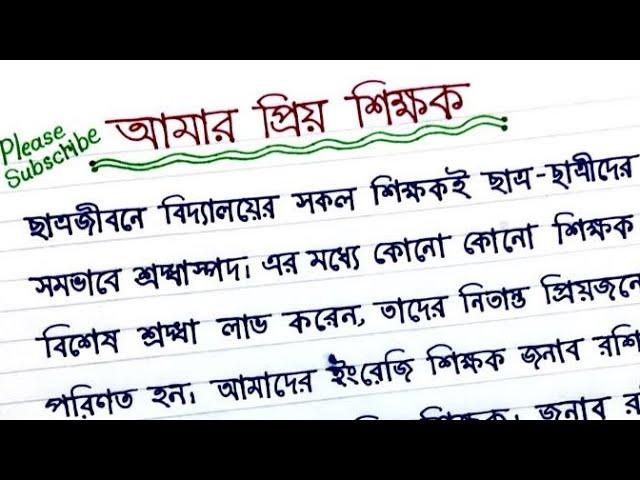 Please
Subscribe
আমার প্রিয় শিক্ষক
ছাত্রজীবনে বিদ্যালয়ের সকল শিক্ষকই ছাত্র-ছাত্রীদের
সমভাবে শ্রদ্ধাস্পদ। এর মধ্যে কোনো কোনো শিক্ষক
বিশেষ শ্রদ্ধা লাভ করেন, তাদের নিতান্ত প্রিয়জনে
পরিণত হন। আমাদের ইংরেজি শিক্ষক জনাব রশি
শিক্ষক। জনাব